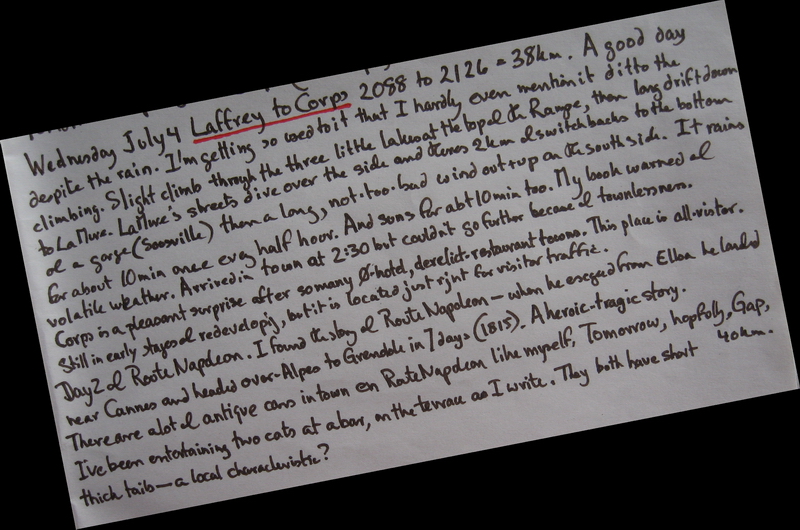 Wednesday July 4 Laffrey to Corps 2088 to 2126 = 38km. A good day
despite the rain. I'm getting so used to it that I hardly even mention it ditto the
climbing. Slight climb through the three little lakes at the top of the Range, then long drift down
to La Mure. La Mure's streets dive over the side and there's 2km of switchbacks to the bottom
of a gorge (Soosville) then a long, not-too-bad wind out + up on the south side. It rains
for about 10 min once every half hour. And suns for abt 10 min too. My book warned of
volatile weather. Arrived in town at 2:30 but couldn't go further because of townlessness.
Corps is a pleasant surprise after so many Ø-hotel, derelict-restaurant towns. This place is all-visitor.
Still in early stages of redevelopig, but it is located just right for visitor traffic.
Day 2 of Route Napoleon. I found the story of Route Napoleon — when he escaped from Elba he landed
near Cannes and headed over-Alps to Grenoble in 7 days (1815). A heroic-tragic story.
There are alot of antique cars in town on Route Napoleon like myself. Tomorrow, hopfully, Gap,
40km.
I've been entertaining two cats at a bar, on the terrace as I write. They both have short
thick tails — a local characteristic?